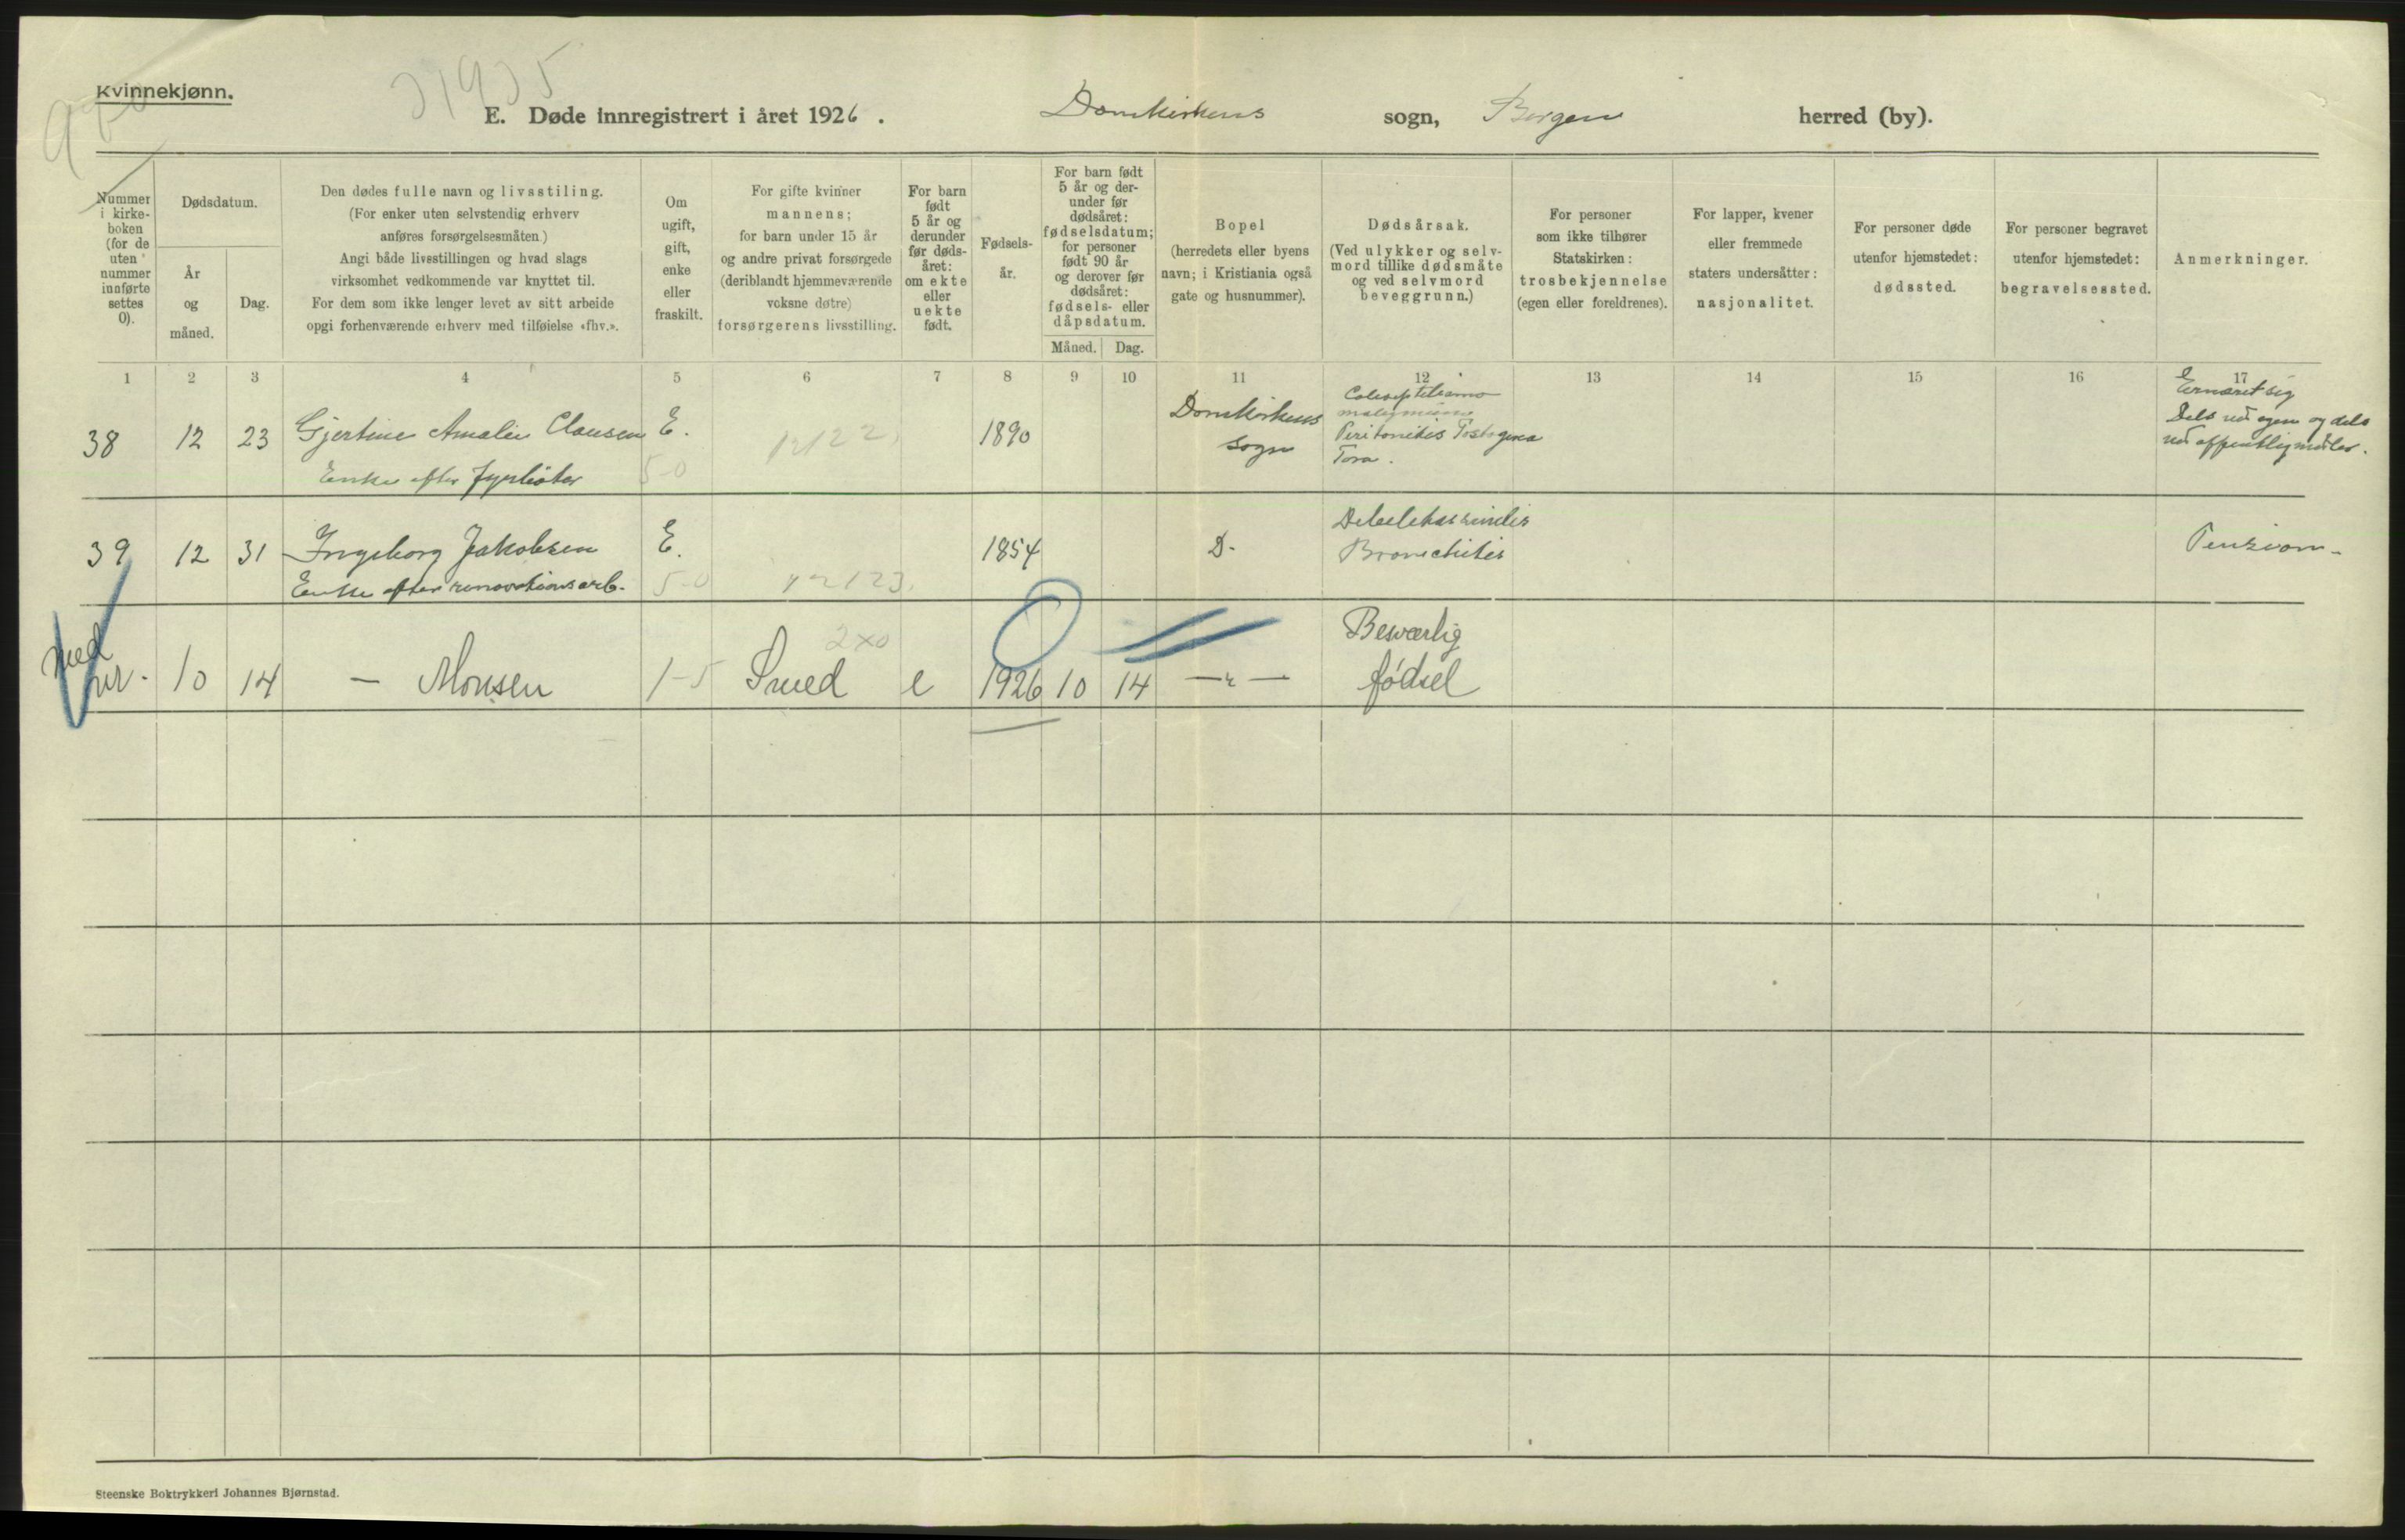 Kvinnekjønn.
E. Døde innregistrert i året 1926. Domkirkens sogn, Bergen herred (by).
Nummer i kirke-boken (for de uten nummer innførte settes 0).
Dødsdatum.
År og måned.
Dag.
Den dødes fulle navn og livsstiling.
(For enker uten selvstendig erhverv
anføres forsørgelsesmåten.)
Angi både livsstillingen og hvad slags
virksomhet vedkommende var knyttet til.
For dem som ikke lenger levet av sitt arbeide
opgi forhenværende erhverv med tilføielse «fhv.».
Om
ugift,
gift,
enke
eller
fraskilt.
For gifte kvinner
mannens;
for barn under 15 år
og andre privat forsørgede
(deriblandt hjemmeværende
voksne døtre)
forsørgerens livsstilling.
For barn
født
5 år og
derunder
før døds-
året:
om ekte
eller
uekte
født.
Fødsels-
år.
For barn født
5 år og der-
under før
dødsåret:
fødselsdatum;
for personer
født 90 år
og derover før
dødsåret:
fødsels- eller
dåpsdatum.
Måned. Dag.
Bopel
(herredets eller byens
navn; i Kristiania også
gate og husnummer).
Dødsårsak.
(Ved ulykker og selv-
mord tillike dødsmåte
og ved selvmord
beveggrunn.)
For personer
som ikke tilhører
Statskirken:
trosbekjennelse
(egen eller foreldrenes).
For lapper, kvener
eller fremmede
staters undersåtter:
nasjonalitet.
For personer døde
utenfor hjemstedet:
dødssted.
For personer begravet
utenfor hjemstedet:
begravelsessted.
Anmerkninger.
1 2 3 4 5 6 7 8 9 10 11 12 13 14 15 16 17
38 12 23 Gjertine Amalie Clausen E. 1890 Domkirkens
sogn
Peritonitis
Enke efter Fyrbøter
5-0
12122
Ernæret sig
dels ved egne og dels
ved offentlig midler.
39 12 31 Ingeborg Jakobsen E. 1854 D- Bronchitis Pension-
Enke efter renovationsarb. 5-0 12123
ned
nr. 10 14 — Monsen 1-5 Smed e 1926 10 14 —"— Besværlig
fødsel
2x0
Steenske Boktrykkeri Johannes Bjørnstad.